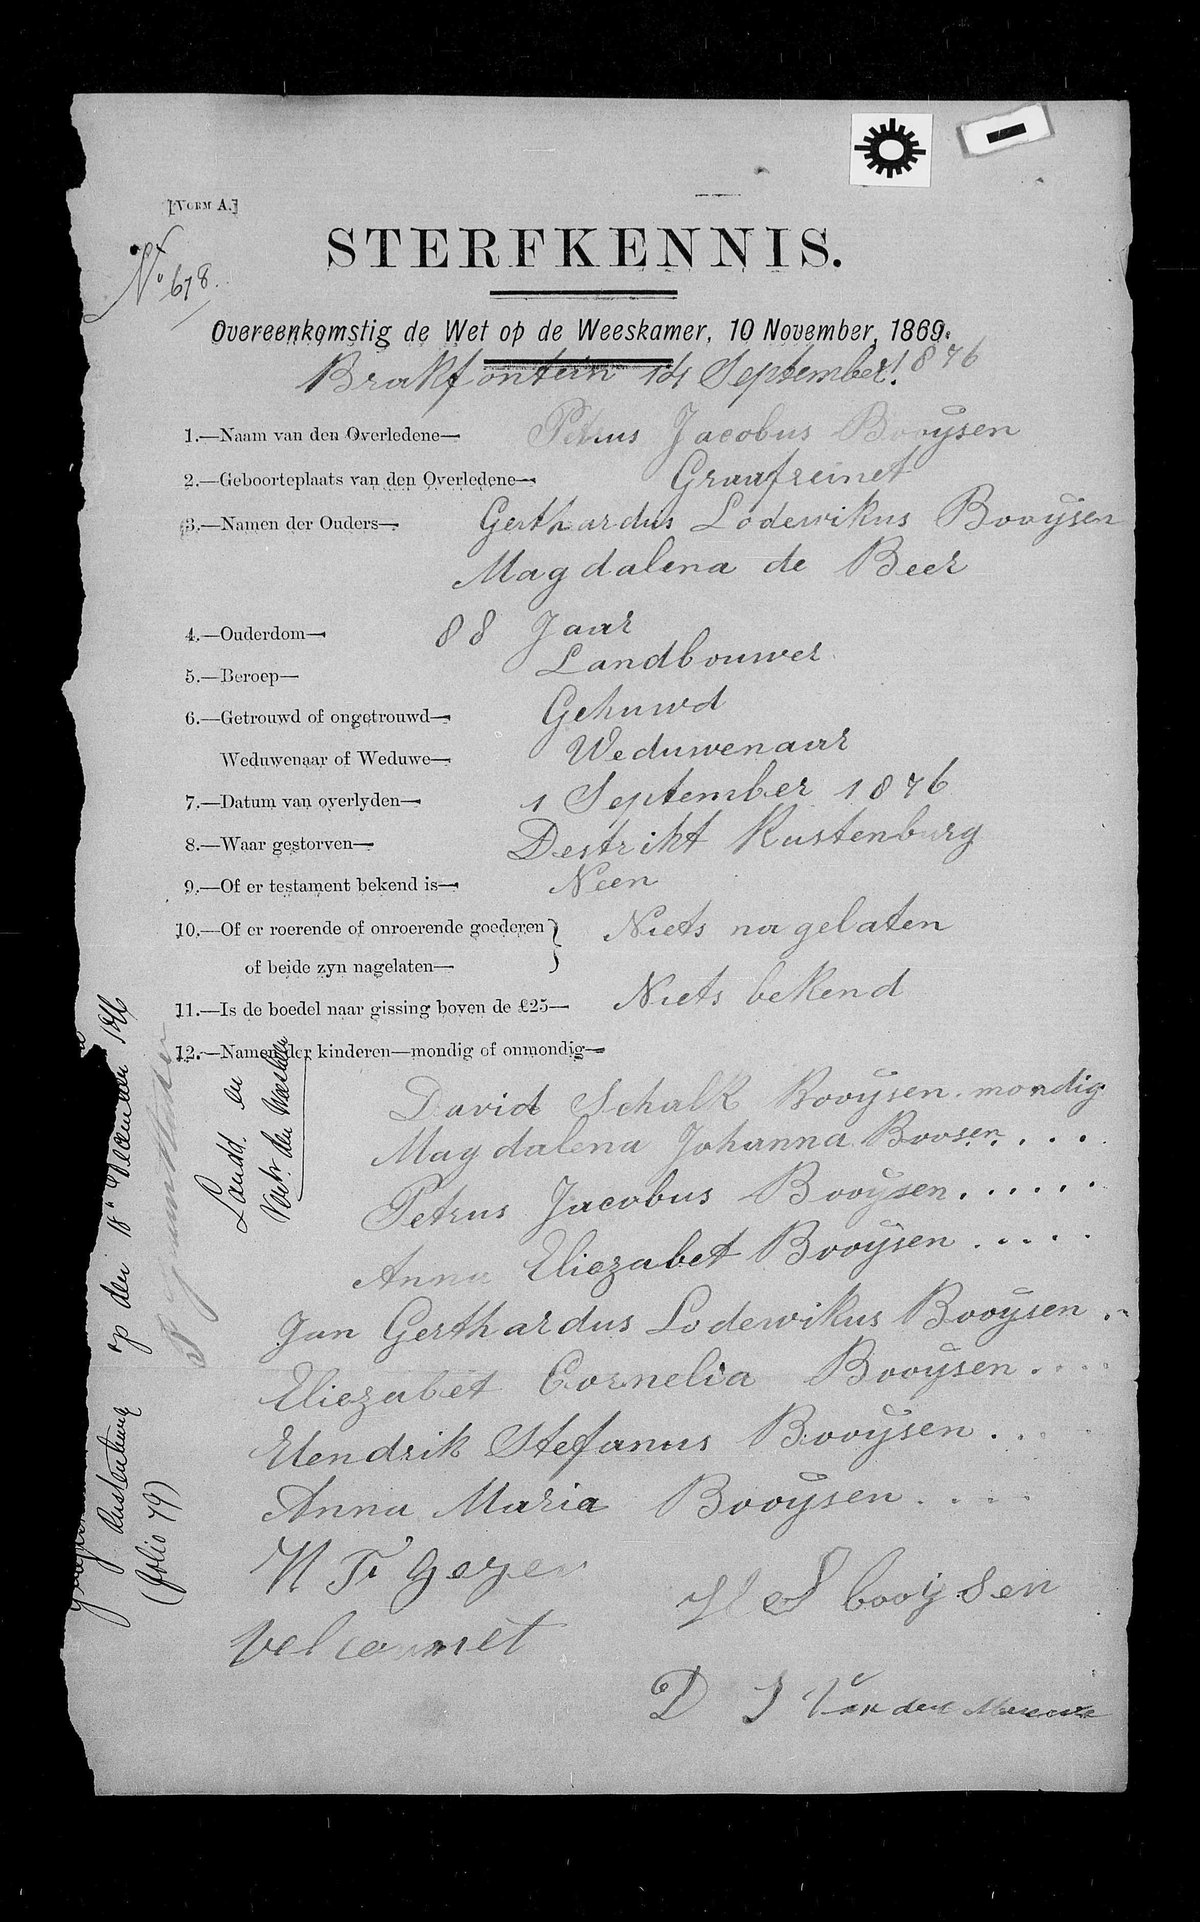 [Vorm A.]
No 678.
STERFKENNIS.
Overeenkomstig de Wet op de Weeskamer, 10 November, 1869.
Brakfontein 14 September 1876
1.—Naam van den Overledene— Petrus Jacobus Booÿsen
2.—Geboorteplaats van den Overledene— Graafreinet
3.—Namen der Ouders— Gerthardus Lodewikus Booÿsen
Magdalena de Beer
4.—Ouderdom— 88 Jaar
5.—Beroep— Landbouwer
6.—Getrouwd of ongetrouwd— Gehuwd
Weduwenaar of Weduwe— Weduwenaar
7.—Datum van overlyden— 1 September 1876
8.—Waar gestorven— Destrikt Rustenburg
9.—Of er testament bekend is— Neen
10.—Of er roerende of onroerende goederen } Niets na gelaten
of beide zyn nagelaten—
11.—Is de boedel naar gissing boven de £25— Niets bekend
12.—Namen der kinderen—mondig of onmondig—
David Schalk Booÿsen. mondig
Magdalena Johanna Boosen....
Petrus Jacobus Booÿsen......
Anna Eliezabet Booÿsen.....
Jan Gerthardus Lodewikus Booÿsen..
Eliezabet Cornelia Booÿsen....
Hendrik Stefanus Booÿsen...
Anna Maria Booÿsen....
H S booijsen
D J Van der
Rustenburg op den 18n December 1876
(folio 79)
Landd. en